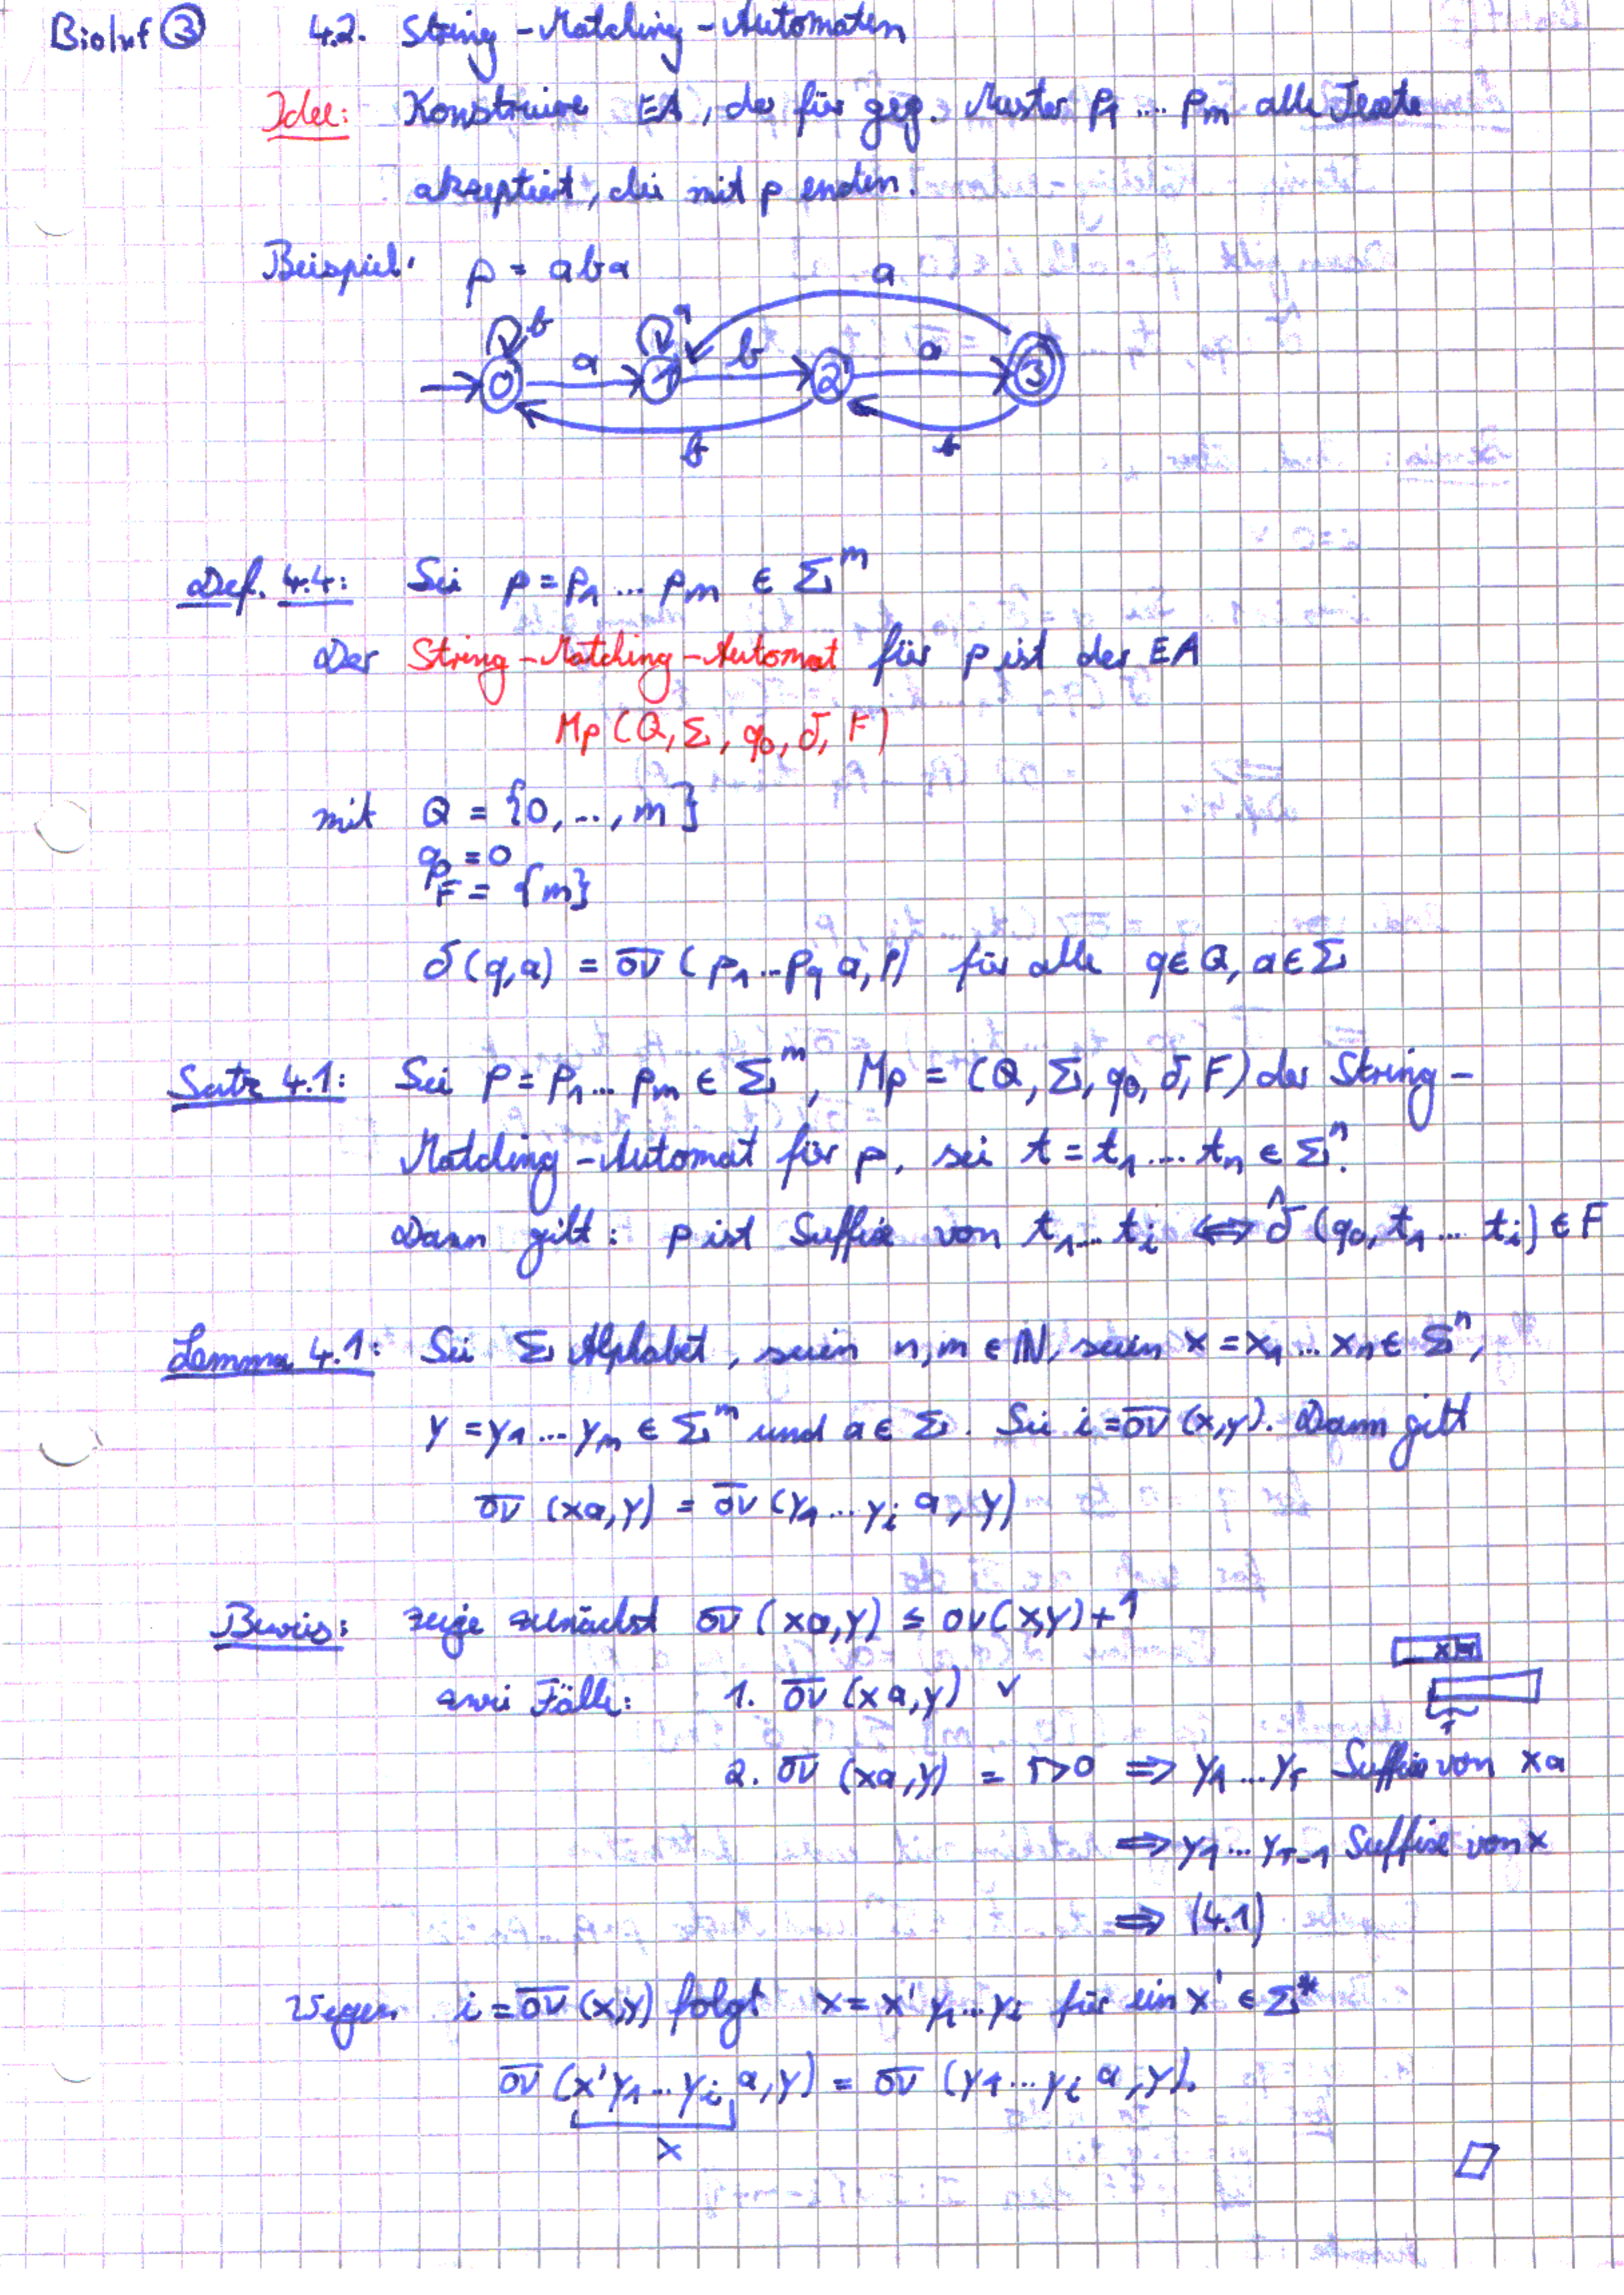 BioInf ③ 4.2. String-Matching-Automaten
Idee: Konstruiere EA, der für geg. Muster p₁ ... pₘ alle Texte
akzeptiert, die mit p enden.
Beispiel: p = aba
a
b a
a b a
0 1 2 3
b b
Def. 4.4: Sei p = p₁ ... pₘ ∈ Σᵐ
Der String-Matching-Automat für p ist der EA
Mp (Q, Σ, q₀, δ, F)
mit Q = {0, .., m}
q₀ = 0
F = {m}
δ(q,a) = o̅v̅ (p₁ ... p_q a, p) für alle q ∈ Q, a ∈ Σ
Satz 4.1: Sei p = p₁ ... pₘ ∈ Σᵐ, Mp = (Q, Σ, q₀, δ, F) der String-
Matching-Automat für p, sei t = t₁ ... tₙ ∈ Σⁿ.
Dann gilt: p ist Suffix von t₁ ... tᵢ ⟺ δ̂ (q₀, t₁ ... tᵢ) ∈ F
Lemma 4.1: Sei Σ Alphabet, seien n, m ∈ ℕ, seien x = x₁ ... xₙ ∈ Σⁿ,
y = y₁ ... yₘ ∈ Σᵐ und a ∈ Σ. Sei i = o̅v̅ (x,y). Dann gilt
o̅v̅ (xa, y) = o̅v̅ (y₁ ... yᵢ a, y)
Beweis: zeige zunächst o̅v̅ (xa, y) ≤ ov(x,y) + 1
zwei Fälle: 1. o̅v̅ (xa, y) ✓
x
r
2. o̅v̅ (xa, y) = r > 0 ⟹ y₁ ... yᵣ Suffix von xa
⟹ y₁ ... yᵣ₋₁ Suffix von x
⟹ (4.1)
Wegen i = o̅v̅ (x,y) folgt x = x' y₁ ... yᵢ für ein x' ∈ Σ*
o̅v̅ (x' y₁ ... yᵢ a, y) = o̅v̅ (y₁ ... yᵢ a, y).
x
□